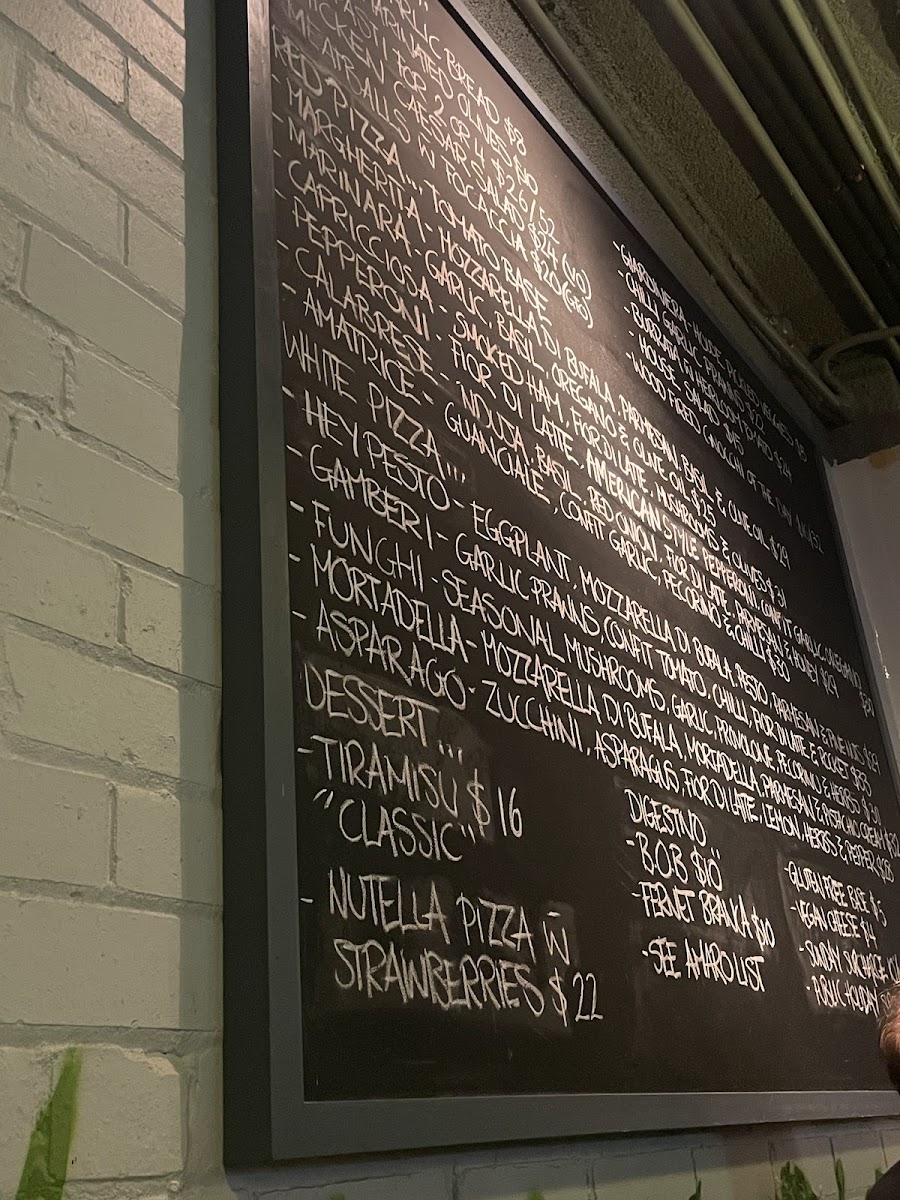 GARLIC BREAD $8
MARINATED OLIVES $10
ANTIPASTI FOR 2 OR 4 $26/52
CHICKEN CAESAR SALAD $24 (V/O)
MEATBALLS W FOCACCIA $20 (GFO)
- GIARDINIERA - HOUSE PICKLED VEGGIES $8
- CHILLI GARLIC PRAWNS
- BURRATA HEIRLOOM TOMATO $24
- HOUSE SALAD
- WOOD FIRED GNOCCHI OF THE DAY
RED PIZZA... TOMATO BASE
- MARGHERITA - MOZZARELLA DI BUFALA, PARMESAN, BASIL & OLIVE OIL $29
- MARINARA - GARLIC, BASIL, OREGANO & OLIVE OIL $25
- CAPRICCIOSA - SMOKED HAM, FIOR DI LATTE, MUSHROOMS & OLIVES $31
- PEPPERONI - FIOR DI LATTE, AMERICAN STYLE PEPPERONI, CONFIT GARLIC, OREGANO
- CALABRESE - 'NDUJA, BASIL, RED ONION, FIOR DI LATE, PARMESAN & HONEY $29
- AMATRICE - GUANCIALE, CONFIT GARLIC, PECORINO & CHILLI $30
WHITE PIZZA...
- HEY PESTO - EGGPLANT, MOZZARELLA DI BUFALA, PESTO, PARMESAN & PINE NUTS $29
- GAMBERI - GARLIC PRAWNS, CONFIT TOMATO, CHILLI, FIOR DI LATE & ROCKET $33
- FUNGHI - SEASONAL MUSHROOMS, GARLIC, PROVOLONE, PECORINO & HERBS $30
- MORTADELLA - MOZZARELLA DI BUFALA, MORTADELLA, PARMESAN & PISTACHIO CREAM $32
- ASPARAGO - ZUCCHINI, ASPARAGUS, FIOR DI LATTE, LEMON, HERBS & PEPPER $28
DESSERT...
- TIRAMISU $16
"CLASSIC"
- NUTELLA PIZZA W
STRAWBERRIES $22
DIGESTIVO...
- BOB $10
- FERNET BRANKA $10
- SEE AMARO LIST
- GLUTEN FREE BASE $5
- VEGAN CHEESE $4
- SUNDAY SURCHARGE
- PUBLIC HOLIDAY